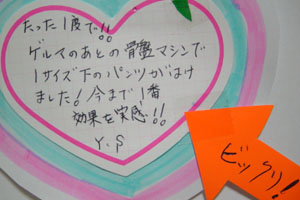 たった1度で!!
ゲルマのあとの骨盤マシンで
1サイズ下のパンツがはけ
ました!今まで1番
効果を実感!!
Y.S
ビックリ!